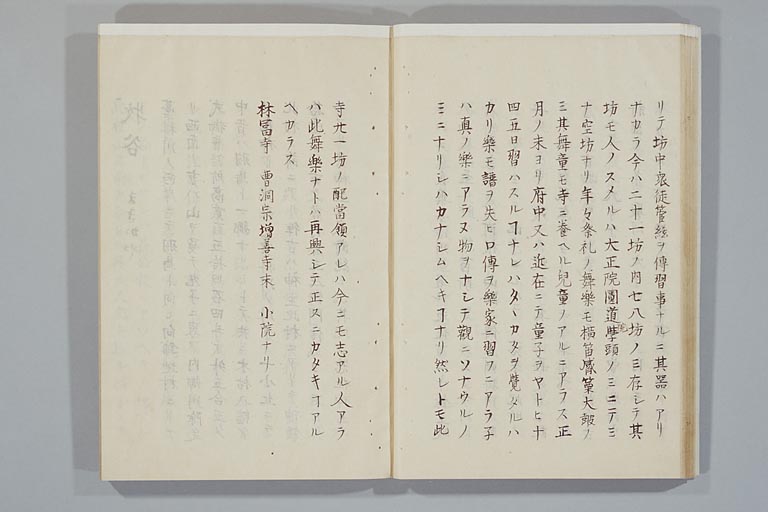 リテ坊中衆徒管絃ヲ傳習事ナルニ其器ハアリ
ナカラ今ハ二十一坊ノ内七八坊ノミ存シテ其
坊モ人ノスメルハ大正院圓道院學頭ノミニテミ
ナ空坊ナリ年々祭礼ノ舞樂モ横笛篳篥大皷ノ
三其舞童モ寺ニ養ヘル兒童ノアルニアラス正
月ノ末ヨリ府中又ハ近在ニテ童子ヲヤトヒ十
四五日習ハスルヿナレハタヽカタヲ覺タルハ
カリ樂モ譜ヲ失ヒ口傳ヲ樂家ニ習フニアラ子
ハ真ノ樂ニアラヌ物ヲナシテ觀ニソナウルノ
ミニナリシハカナシムヘキヿナリ然レトモ此
寺廿一坊ノ配當領アレハ今ニモ志アル人アラ
ハ此舞樂ナトハ再興シテ正スニカタキヿアル
ヘカラス
林冨寺 曹洞宗増善寺末 小院ナリ